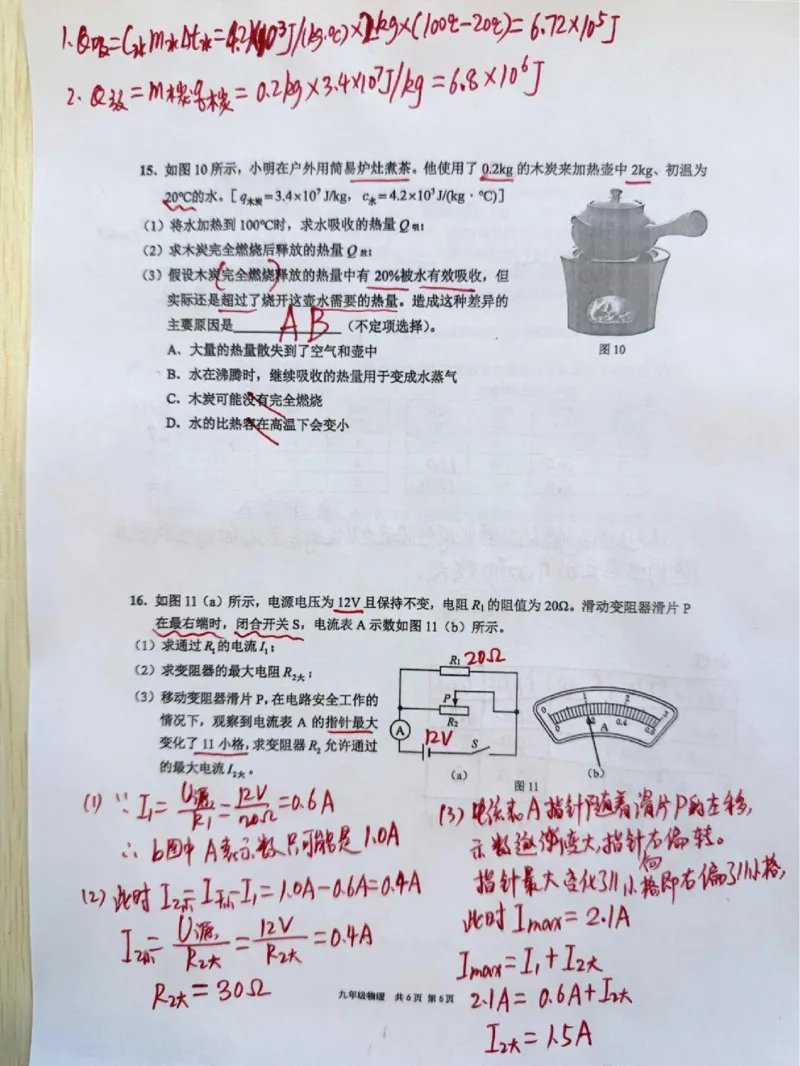 1. Q吸=C水m水Δt水=4.2×10³J/(kg·℃)×2kg×(100℃-20℃)=6.72×10⁵J
2. Q放=m木炭q木炭=0.2kg×3.4×10⁷J/kg=6.8×10⁶J
15. 如图 10 所示，小明在户外用简易炉灶煮茶。他使用了 0.2kg 的木炭来加热壶中 2kg、初温为
20℃的水。[ q木炭=3.4×10⁷ J/kg， c水=4.2×10³ J/(kg·℃)]
（1）将水加热到 100℃时，求水吸收的热量 Q吸；
（2）求木炭完全燃烧后释放的热量 Q放；
（3）假设木炭(完全燃烧)释放的热量中有 20%被水有效吸收，但
实际还是超过了烧开这壶水需要的热量。造成这种差异的
主要原因是 AB （不定项选择）。
A、大量的热量散失到了空气和壶中
B、水在沸腾时，继续吸收的热量用于变成水蒸气
C、木炭可能没有完全燃烧
D、水的比热容在高温下会变小
图 10
16. 如图 11（a）所示，电源电压为 12V 且保持不变，电阻 R₁ 的阻值为 20Ω。滑动变阻器滑片 P
在最右端时，闭合开关 S，电流表 A 示数如图 11（b）所示。
（1）求通过 R₁的电流 I₁；
（2）求变阻器的最大电阻 R₂大；
（3）移动变阻器滑片 P，在电路安全工作的
情况下，观察到电流表 A 的指针最大
变化了 11 小格，求变阻器 R₂ 允许通过
的最大电流 I₂大。
R₁ 20Ω
P
R₂
A
12V
S
（a）
0 1 2 3
0 0.2 0.4 0.6
A
（b）
图 11
(1) ∵ I₁=U源/R₁=12V/20Ω=0.6A
∴ b图中 A表示数只可能是 1.0A
(2) 此时 I₂小=I干小-I₁=1.0A-0.6A=0.4A
I₂小=U源/R₂大=12V/R₂大=0.4A
R₂大=30Ω
(3) 电流表A指针随着滑片P的左移，
示数逐渐变大，指针右偏转。
指针最大变化了11小格即向右偏了11小格，
此时 Imax=2.1A
Imax=I₁+I₂大
2.1A=0.6A+I₂大
I₂大=1.5A
九年级物理 共 6 页 第 5 页